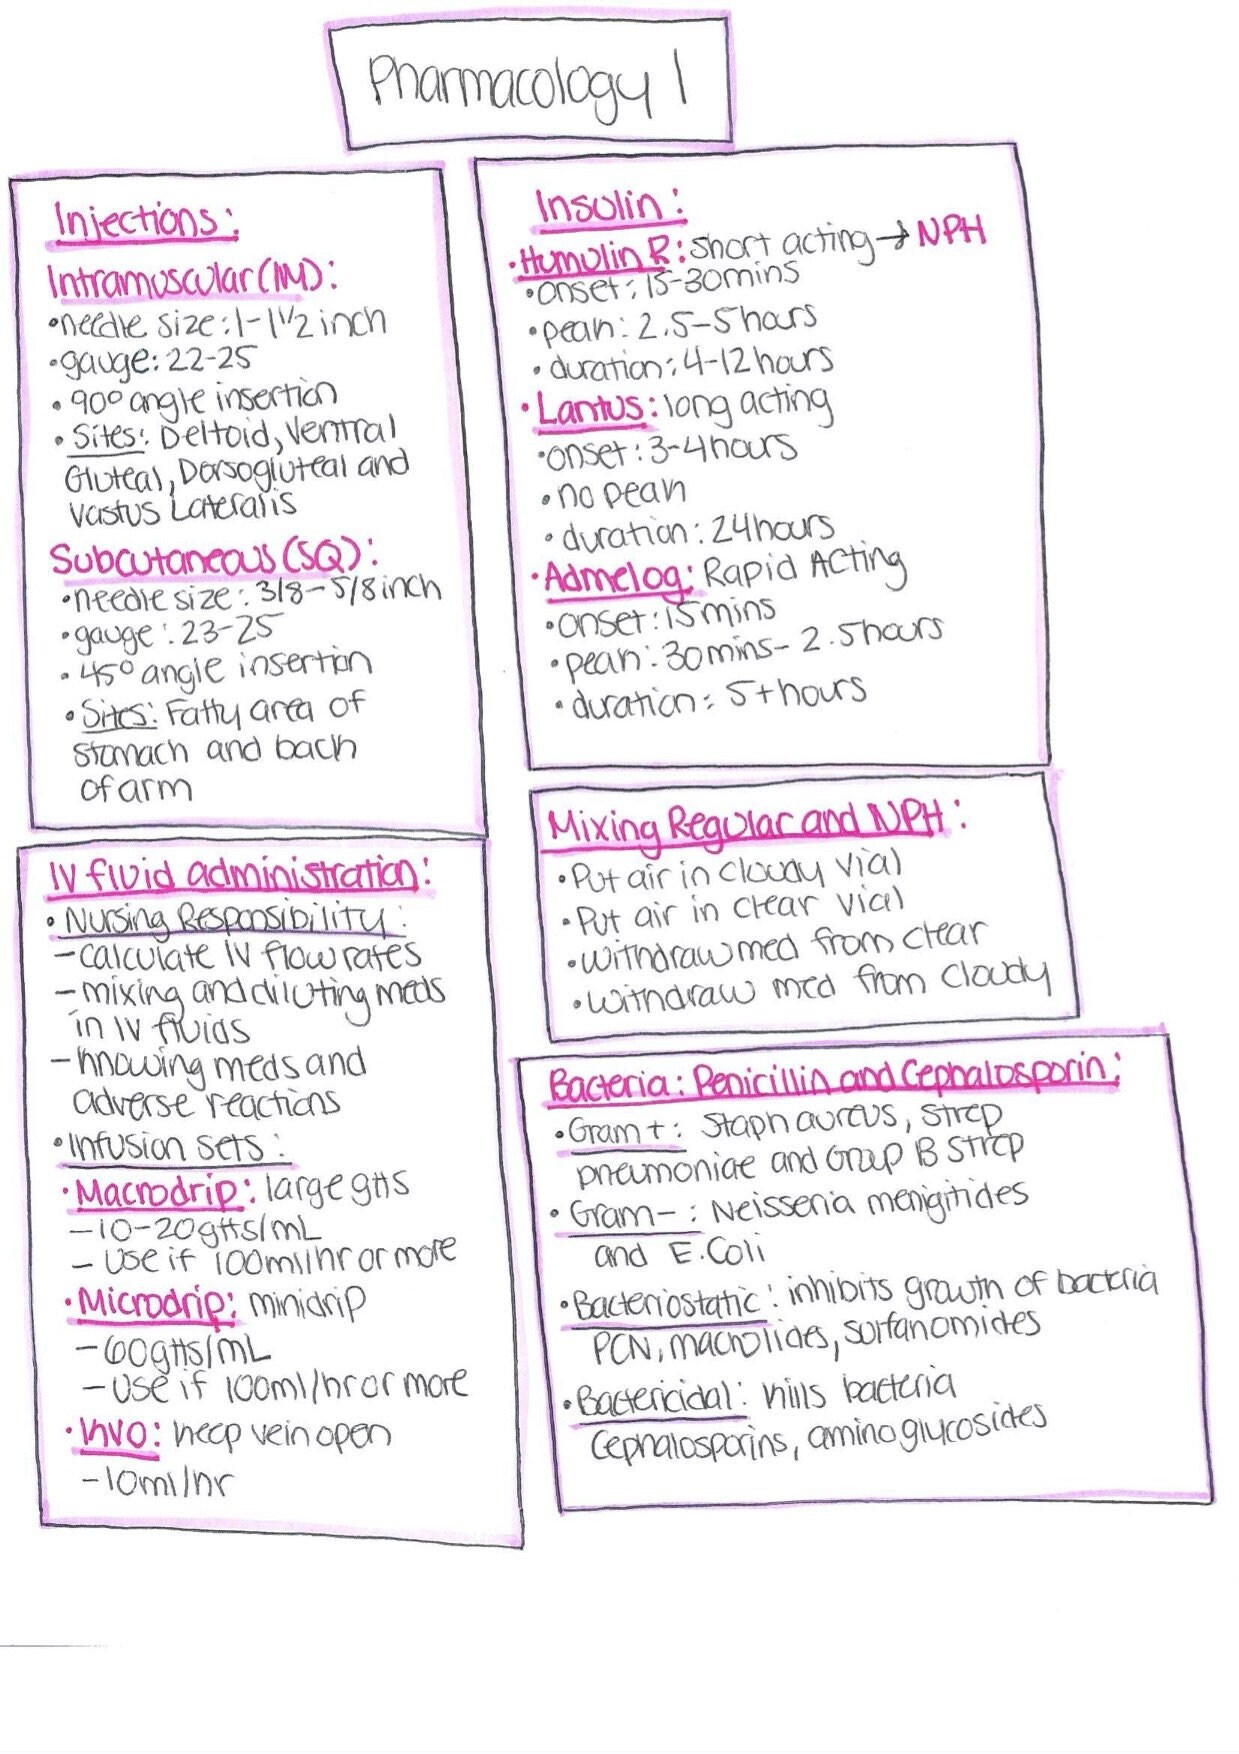 Pharmacology 1
Injections:
Intramuscular (IM):
•needle size: 1-1 1/2 inch
•gauge: 22-25
• 90° angle insertion
• Sites: Deltoid, Ventral
Gluteal, Dorsogluteal and
Vastus Lateralis
Subcutaneous (SQ):
•needle size: 3/8-5/8 inch
•gauge: 23-25
• 45° angle insertion
• Sites: Fatty area of
stomach and back
of arm
IV fluid administration:
• Nursing Responsibility:
- calculate IV flow rates
- mixing and diluting meds
in IV fluids
- knowing meds and
adverse reactions
• Infusion sets:
• Macrodrip: large gtts
- 10-20gtts/mL
- Use if 100ml/hr or more
• Microdrip: minidrip
- 60gtts/mL
- Use if 100ml/hr or more
• KVO: keep vein open
- 10ml/hr
Insulin:
• Humulin R: short acting → NPH
• onset: 15-30mins
• peak: 2.5-5 hours
• duration: 4-12 hours
• Lantus: long acting
• onset: 3-4 hours
• no peak
• duration: 24 hours
• Admelog: Rapid Acting
• onset: 15 mins
• peak: 30 mins- 2.5 hours
• duration: 5+ hours
Mixing Regular and NPH:
• Put air in cloudy vial
• Put air in clear vial
• withdraw med from clear
• withdraw med from cloudy
Bacteria: Penicillin and Cephalosporin:
• Gram +: Staph aureus, strep
pneumoniae and Group B Strep
• Gram - : Neisseria menigitides
and E. Coli
• Bacteriostatic: inhibits growth of bacteria
PCN, macrolides, surfanomides
• Bactericidal: kills bacteria
Cephalosporins, aminoglycosides